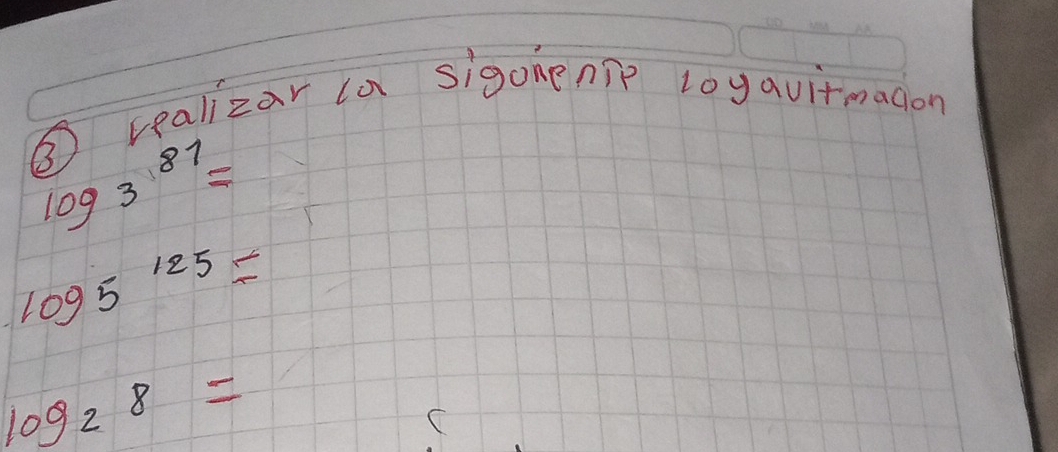 ③ realizar la sigoiente logavitmacion
log 3 81 =
log 5 125 =
log 2 8 =